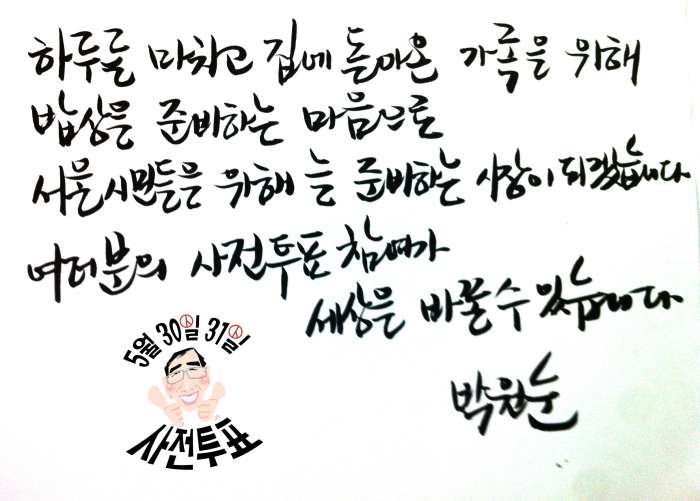 하루를 마치고 집에 돌아온 가족을 위해
밥상을 준비하는 마음으로
서울시민들을 위해 늘 준비하는 시장이 되겠습니다
여러분의 사전투표 참여가
세상을 바꿀 수 있습니다
박원순
5월 30일 31일!
사전투표